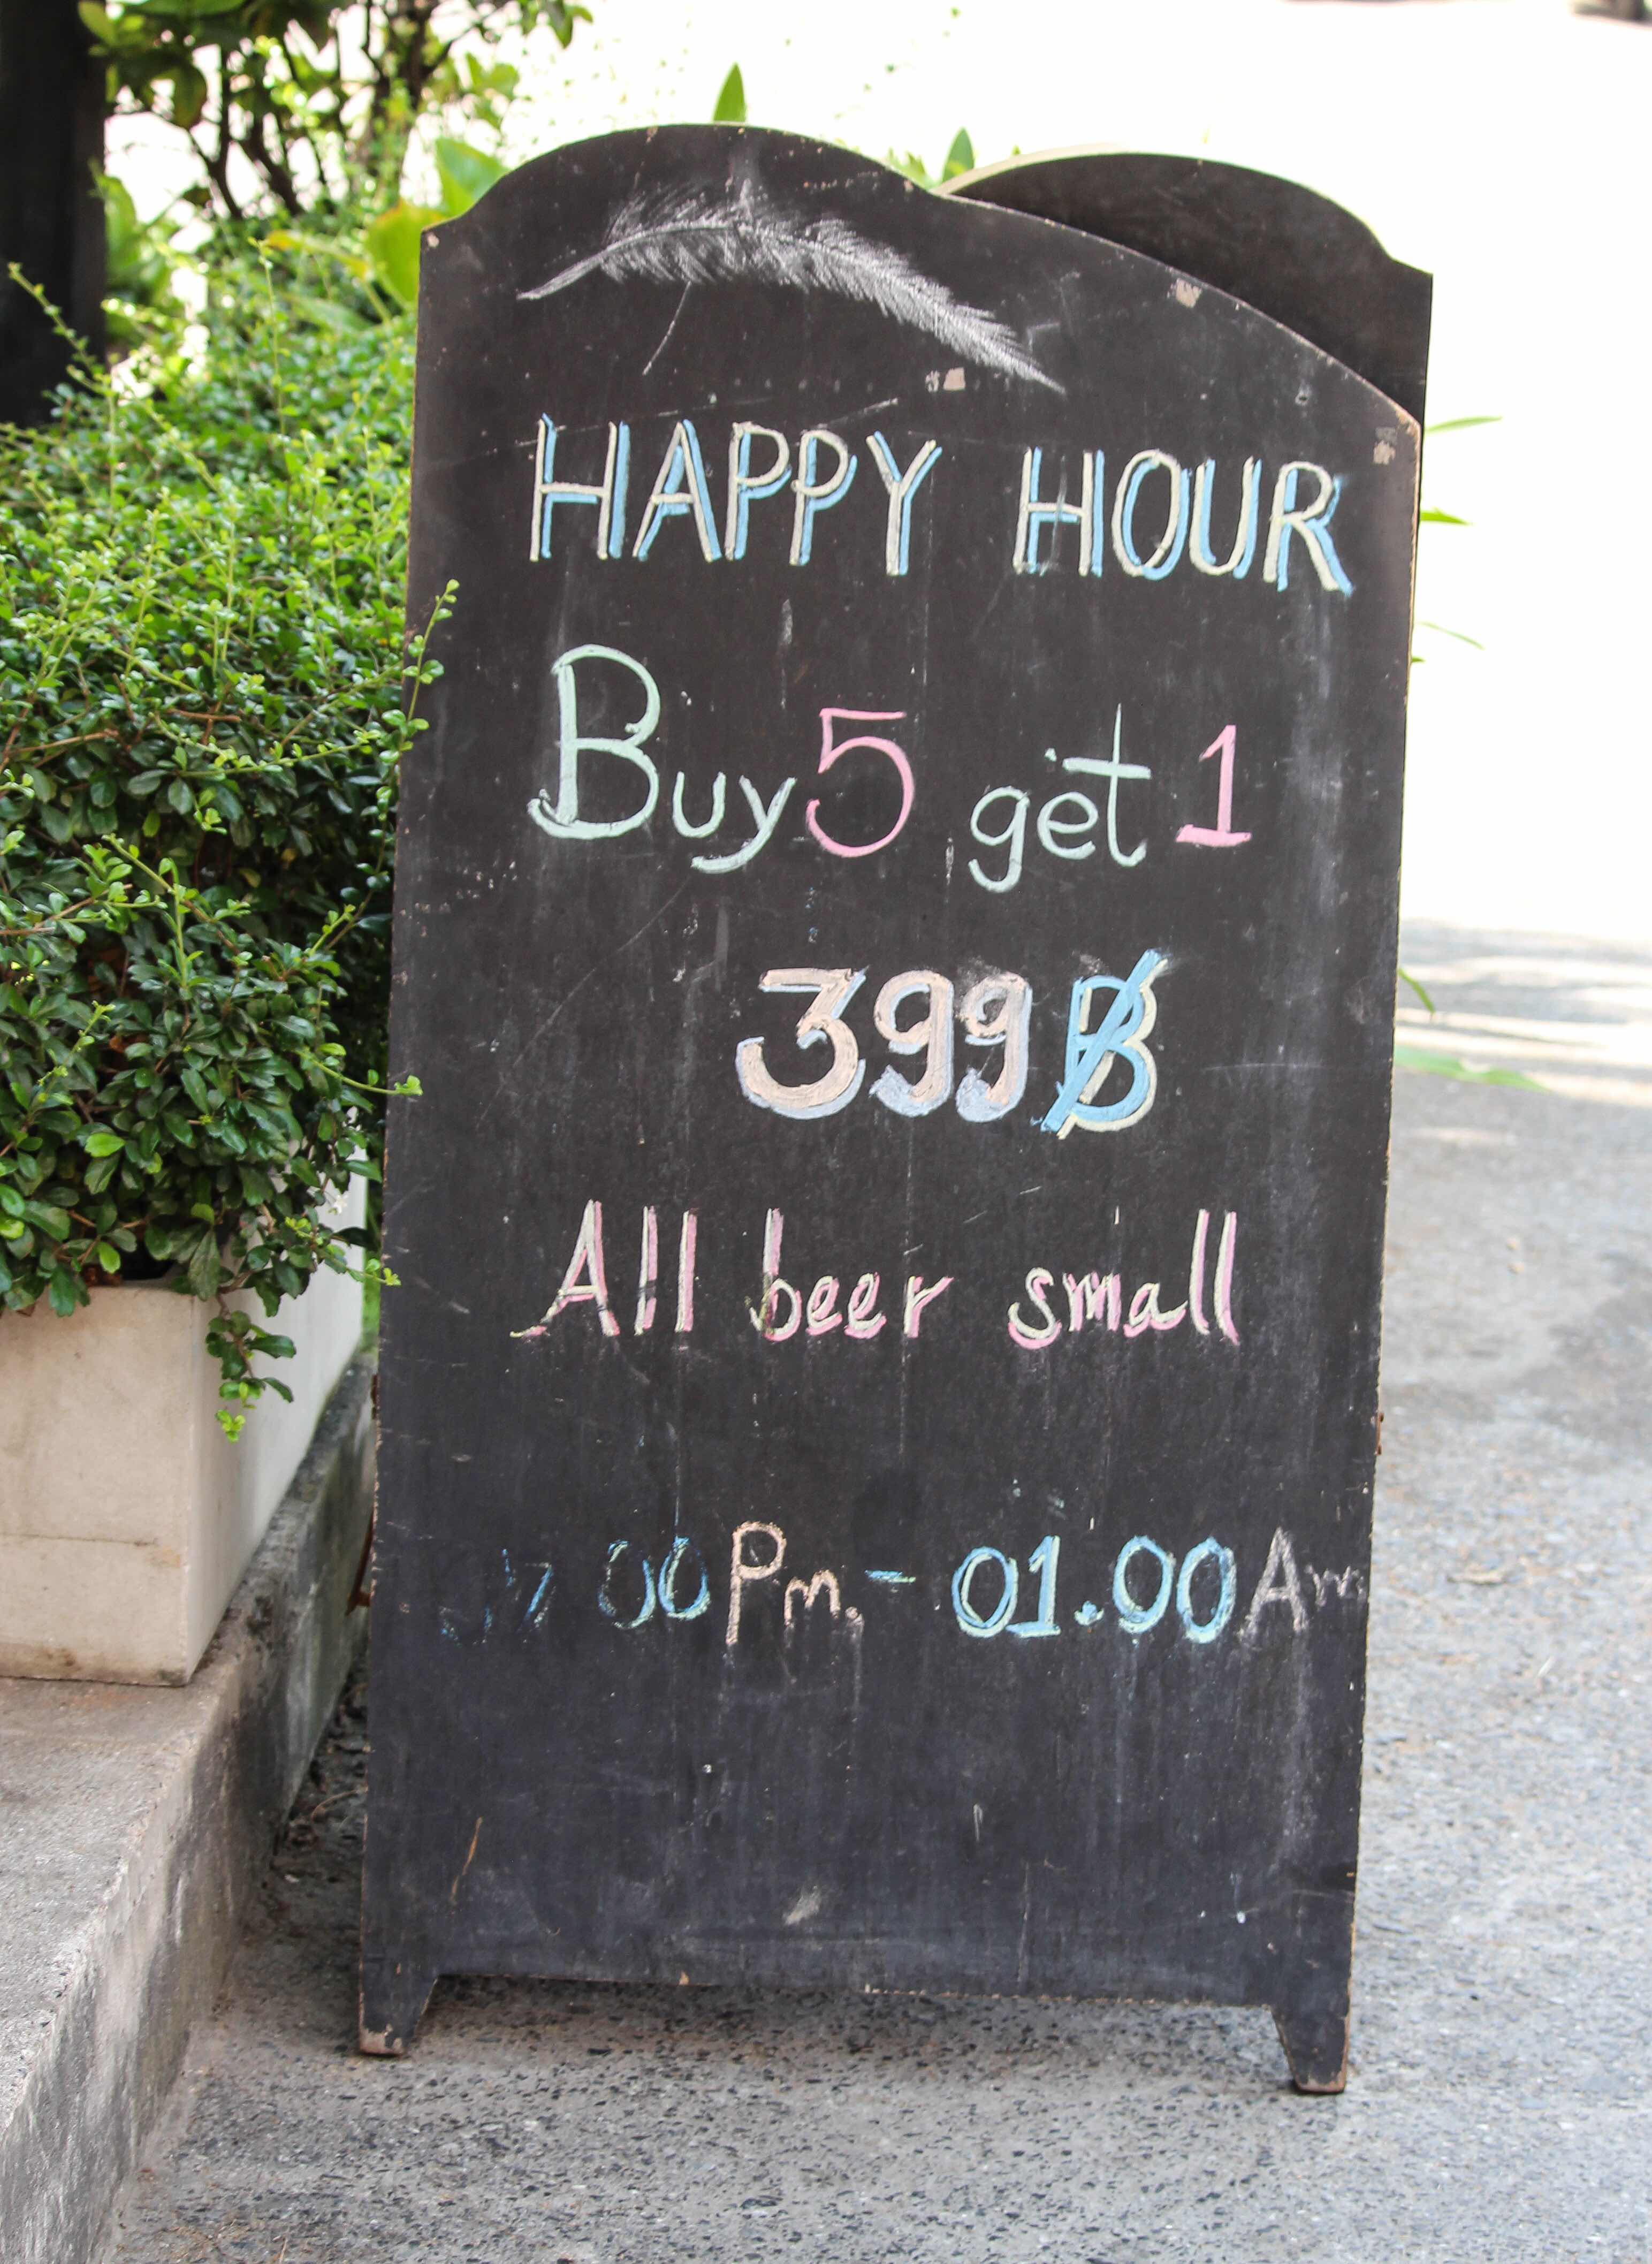 HAPPY HOUR
Buy 5 get 1
399 ฿
All beer small
00 Pm. - 01.00 Am